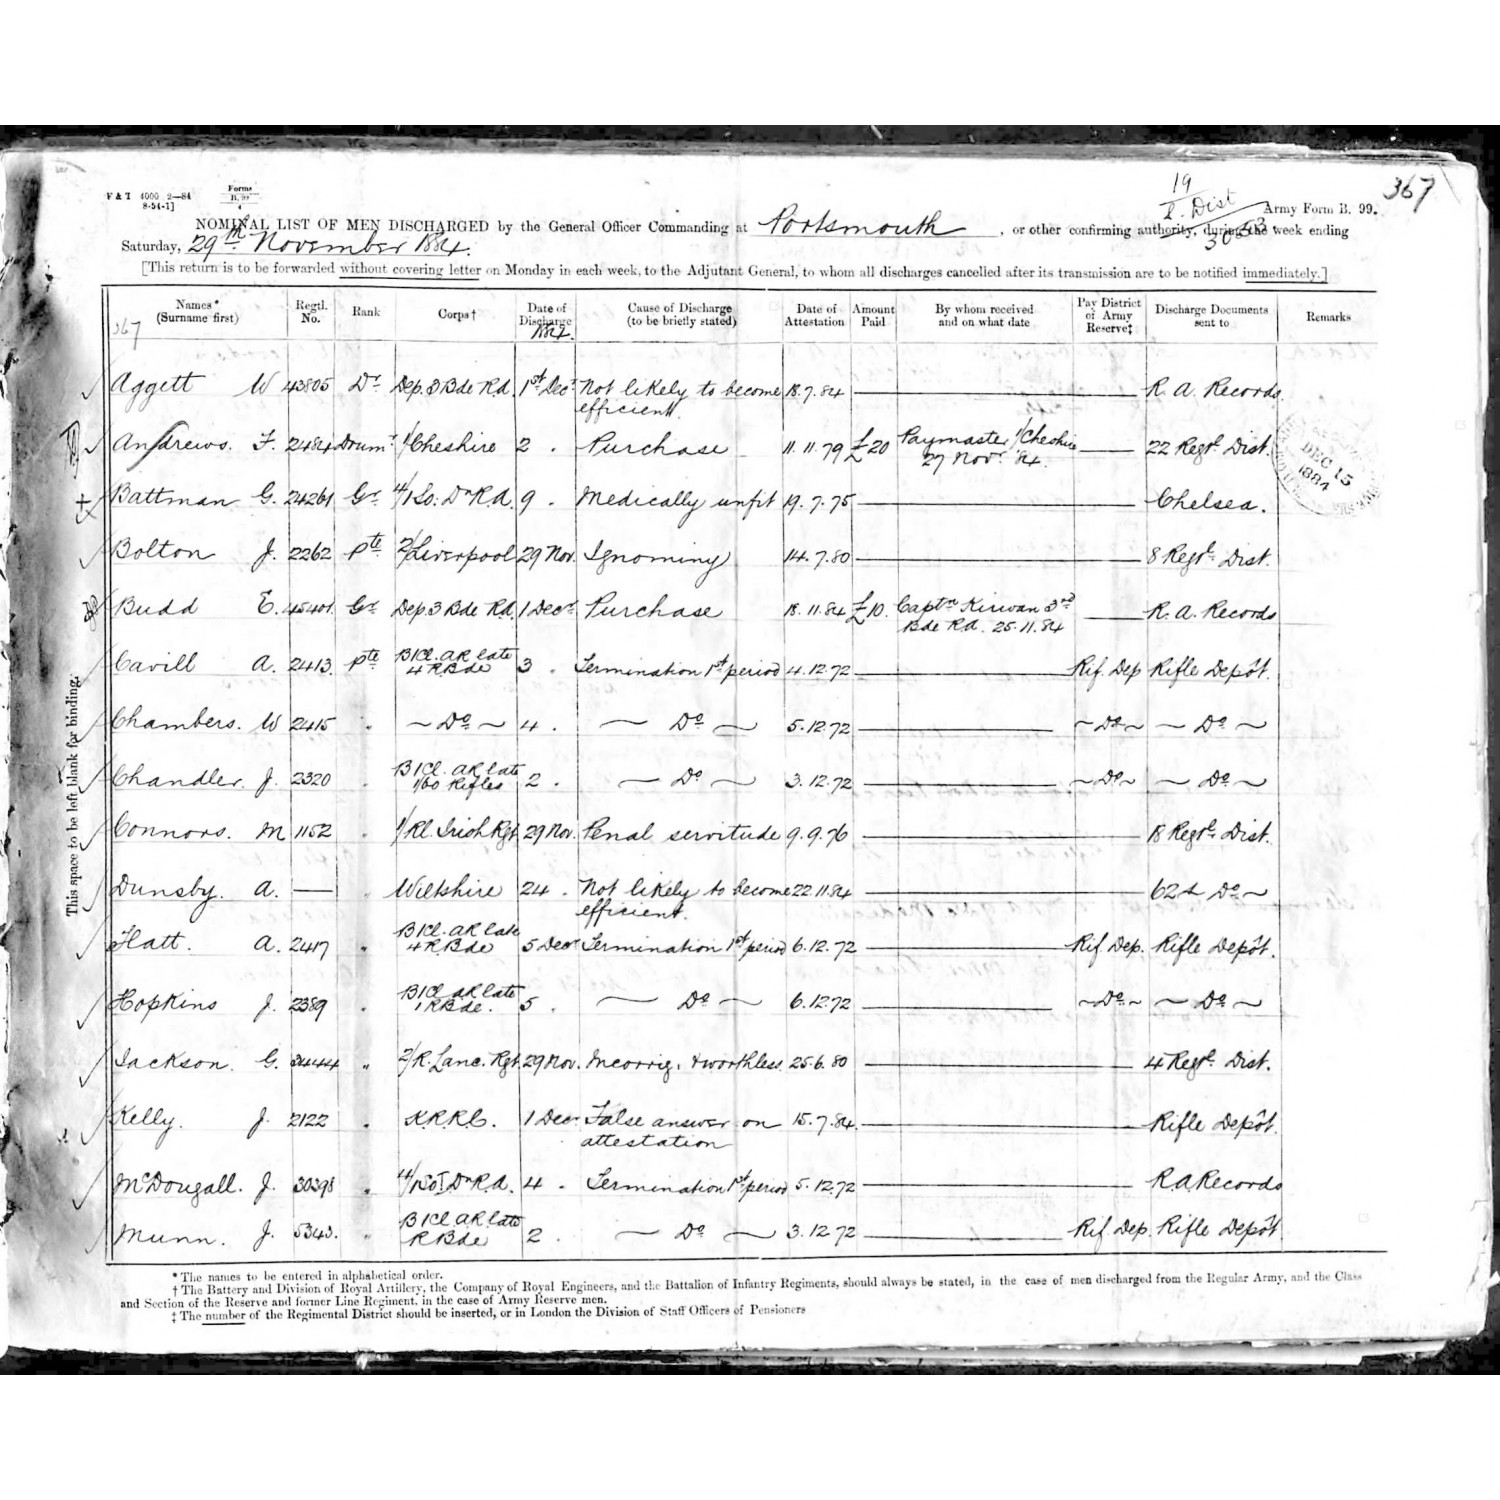 367
19
2. Dist
F & T 4000 2—84
8-54-1]
Forms
B. 99
4
Army Form B. 99.
NOMINAL LIST OF MEN DISCHARGED by the General Officer Commanding at Portsmouth, or other confirming authority, during the week ending
Saturday, 29th November 1884.
[This return is to be forwarded without covering letter on Monday in each week, to the Adjutant General, to whom all discharges cancelled after its transmission are to be notified immediately.]
Names* (Surname first) Regtl. No. Rank Corps† Date of Discharge 1884. Cause of Discharge (to be briefly stated) Date of Attestation Amount Paid By whom received and on what date Pay District of Army Reserve‡ Discharge Documents sent to Remarks
367
Aggett W 43805 Dr Dep. 3 Bde R.A. 1st Decr Not likely to become 18.7.84 R. A. Records
efficient.
Andrews. F. 2484 Drumr 1/Cheshire 2 . Purchase 11.11.79 £20 Paymaster 1/Cheshire 22 Regtl Dist.
27 Novr '84.
Battman G. 24261 Gr 4/1 So: Dn R.A. 9 . Medically unfit 19.7.75 Chelsea.
Bolton J. 2262 Pte 2/Liverpool 29 Nov. Ignominy 14.7.80 8 Regtl Dist.
Budd E. 45401 Gr Dep. 3 Bde R.A. 1 Decr Purchase 18.11.84 £10. Captn Kirwan 3rd R. A. Records
Bde R.A. 25.11.84
Cavill A. 2413. Pte B 1 Cl. A.R late 4 R.Bde 3 . Termination 1st period 4.12.72 Rif. Dep Rifle Depôt.
Chambers. W 2415 " ~ Do ~ 4 . ~ Do ~ 5.12.72 ~ Do ~ ~ Do ~
Chandler. J. 2320 " B 1 Cl. A.R late 1/60 Rifles 2 . ~ Do ~ 3.12.72 ~ Do ~ ~ Do ~
Connors. M 1152 " 1/Rl. Irish Rgt. 29 Nov. Penal servitude 9.9.76 18 Regtl Dist.
Dunsby. A. — " Wiltshire 24 . Not likely to become 22.11.84 62 ~ Do ~
efficient.
Flatt. A. 2417 " B 1 Cl. A.R late 4 R.Bde 5 Decr Termination 1st period 6.12.72 Rif. Dep. Rifle Depôt.
Hopkins J. 2389 " B 1 Cl A.R late 1 R.Bde. 5 . ~ Do ~ 6.12.72 ~ Do ~ ~ Do ~
Jackson. G. 3444 " 2/R. Lanc. Rgt. 29 Nov. Incorrig. & worthless 25.6.80 4 Regtl Dist.
Kelly. J. 2122 " K.R.R.C. 1 Decr False answer on 15.7.84. Rifle Depôt.
attestation
McDougall. J. 30398 " 4/1 So I Dn R.A. 4 . Termination 1st period 5.12.72 R.A Records
Munn. J. 5343. " B 1 Cl A.R late R Bde 2 . ~ Do ~ 3.12.72 Rif. Dep. Rifle Depôt
DEC 15
1884
This space to be left blank for binding.
* The names to be entered in alphabetical order.
† The Battery and Division of Royal Artillery, the Company of Royal Engineers, and the Battalion of Infantry Regiments, should always be stated, in the case of men discharged from the Regular Army, and the Class
and Section of the Reserve and former Line Regiment, in the case of Army Reserve men.
‡ The number of the Regimental District should be inserted, or in London the Division of Staff Officers of Pensioners